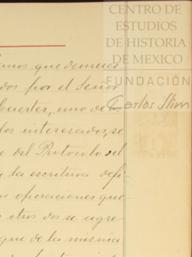 CENTRO DE
ESTUDIOS
DE HISTORIA
DE MEXICO
FUNDACIÓN
Carlos Slim
que de
dos por el Señor
uno de
los interesados, se
del Protocolo del
la escritura
operaciones que
otros dos se agre-
que de la misma